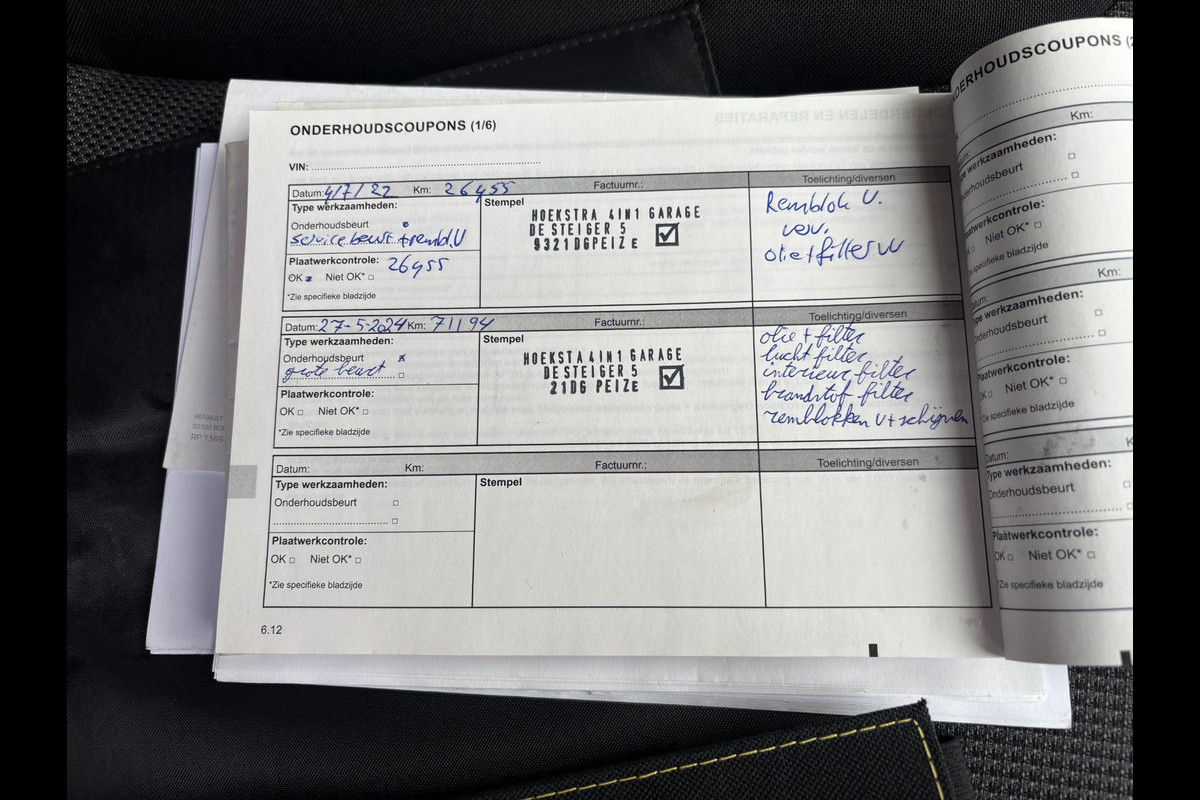 ONDERHOUDSCOUPONS (1/6)
VIN:
Datum: 4/7/22 Km: 26455 Factuurnr.: Toelichting/diversen
Type werkzaamheden:
Onderhoudsbeurt
servicebeurt + rembl. V
Plaatwerkcontrole: 26455
OK Niet OK*
*Zie specifieke bladzijde
Stempel
HOEKSTRA 4IN1 GARAGE
DE STEIGER 5
9321 DGPEIZE
Remblok V.
verv.
olie + filter VV
Datum: 27-5-2024 Km: 71194 Factuurnr.: Toelichting/diversen
Type werkzaamheden:
Onderhoudsbeurt x
grote beurt
Plaatwerkcontrole:
OK Niet OK*
*Zie specifieke bladzijde
Stempel
HOEKSTA 4IN1 GARAGE
DE STEIGER 5
21DG PEIZE
olie + filter
lucht filter
interieur filter
brandstof filter
remblokken V + schijven
Datum: Km: Factuurnr.: Toelichting/diversen
Type werkzaamheden:
Onderhoudsbeurt
Plaatwerkcontrole:
OK Niet OK*
*Zie specifieke bladzijde
Stempel
6.12
RENAULT
RP 1369
NDERHOUDSCOUPONS (2
Km:
ype werkzaamheden:
nderhoudsbeurt
laatwerkcontrole:
Niet OK*
Zie specifieke bladzijde
Datum: Km:
Type werkzaamheden:
Onderhoudsbeurt
Plaatwerkcontrole:
OK Niet OK*
*Zie specifieke bladzijde
Datum: K
Type werkzaamheden:
Onderhoudsbeurt
Plaatwerkcontrole:
OK Niet OK*
*Zie specifieke bladzijde